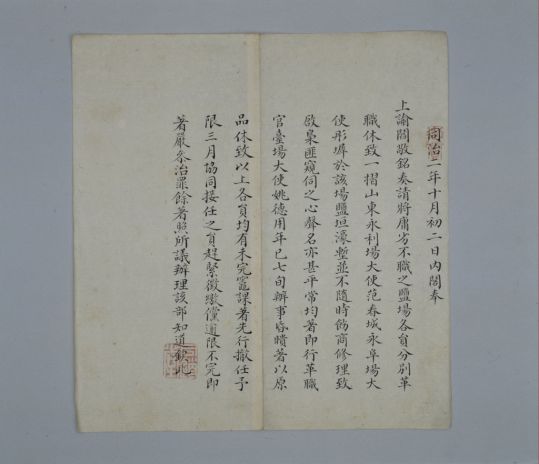 同治二年十月初二日內閣奉
上諭閻敬銘奏請將庸劣不職之鹽場各員分別革
職休致一摺山東永利場大使范春城永阜場大
使彤墀於該場鹽垣濠塹並不隨時飭商修理致
啟梟匪窺伺之心聲名亦甚平常均著即行革職
官臺場大使姚德用年已七旬辦事昏憒著以原
品休致以上各員均有未完竈課著先行撤任予
限三月協同接任之員趕緊徵繳儻逾限不完即
著嚴參治罪餘著照所議辦理該部知道欽此